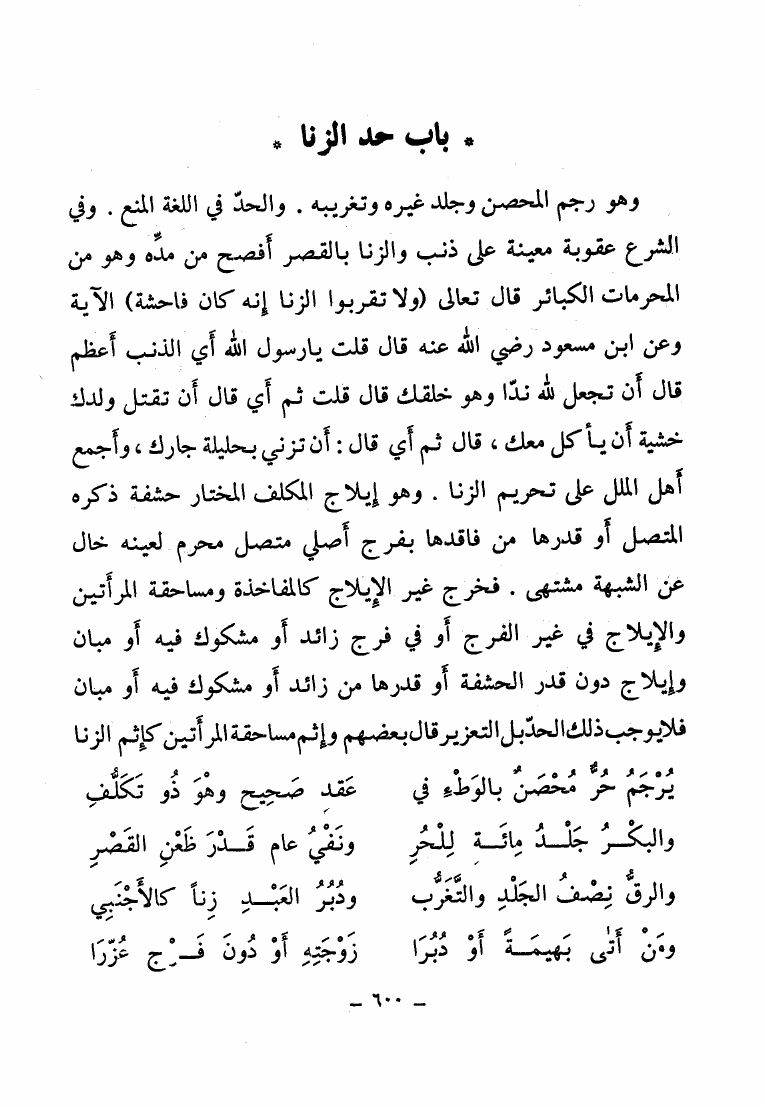 * باب حد الزنا *
وهو رجم المحصن وجلد غيره وتغريبه . والحدّ في اللغة المنع . وفي
الشرع عقوبة معينة على ذنب والزنا بالقصر أفصح من مدّه وهو من
المحرمات الكبائر قال تعالى (ولا تقربوا الزنا إنه كان فاحشة) الآية
وعن ابن مسعود رضي الله عنه قال قلت يارسول الله أي الذنب أعظم
قال أن تجعل لله ندّا وهو خلقك قال قلت ثم أي قال أن تقتل ولدك
خشية أن يأكل معك ، قال ثم أي قال : أن تزني بحليلة جارك ، وأجمع
أهل الملل على تحريم الزنا . وهو إيلاج المكلف المختار حشفة ذكره
المتصل أو قدرها من فاقدها بفرج أصلي متصل محرم لعينه خال
عن الشبهة مشتهى . فخرج غير الإيلاج كالمفاخذة ومساحقة المرأتين
والإيلاج في غير الفرج أو في فرج زائد أو مشكوك فيه أو مبان
وإيلاج دون قدر الحشفة أو قدرها من زائد أو مشكوك فيه أو مبان
فلايوجب ذلك الحدّ بل التعزير قال بعضهم وإثم مساحقة المرأتين كإثم الزنا
يُرْجَمُ حُرٌّ مُحْصَنٌ بالوَطْءِ في عَقد صَحِيح وهْوَ ذُو تَكَلُّفِ
والبكْرُ جَلْدُ مِائَة لِلْحُرِ ونَفْيُ عام قَدْرَ ظَعْنِ القَصْرِ
والرقُّ نِصْفُ الجَلْدِ والتَّغَرُّب ودُبُرُ العَبْدِ زِناً كالأَجْنَبِي
ومَنْ أتٰى بَهيمَةً أوْ دُبُرَا زَوْجَتِهِ أوْ دُونَ فَرْج عُزِّرَا
– ٦٠٠ –